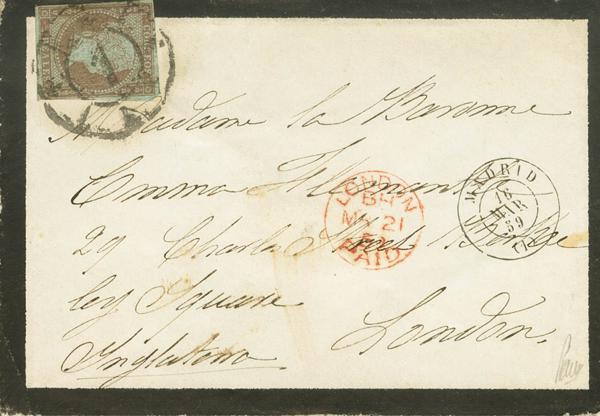 1
Madame la Baronne
Emma
29 Charles Street Berke
ley Square
London.
Inglaterra
LONDON
BH
MY 21
PAID
MADRID
16
MAR
59
(1)